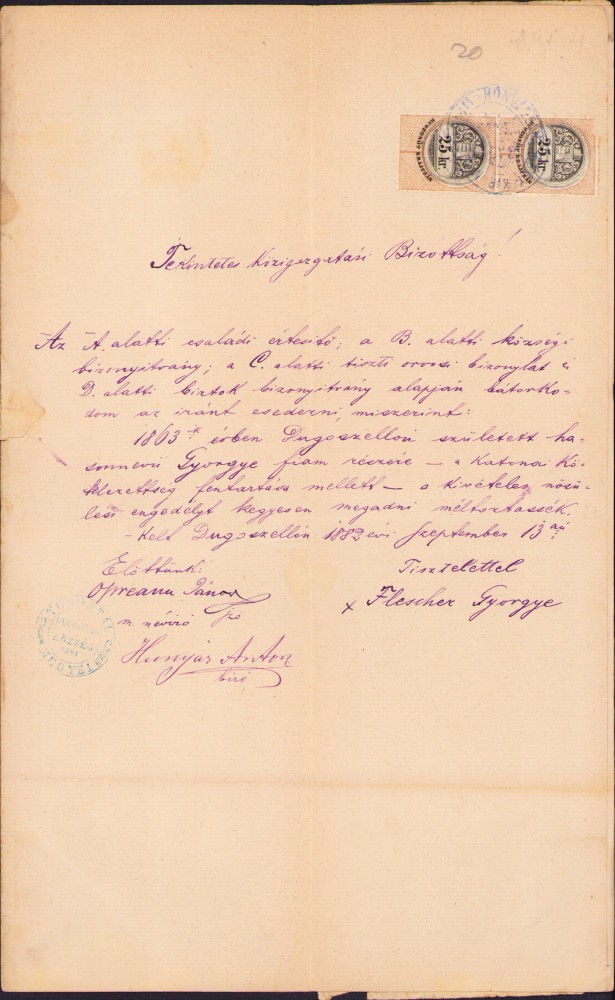 20
25 kr
25 kr
Tekintetes Közigazgatási Bizottság!
Az A. alatti családi értesitő; a B. alatti községi
bizonyitvány; a C. alatti tiszti orvosi bizonylat és
D. alatti birtok bizonyitvány alapján bátorko-
dom az iránt esedezni, miszerint:
1863 évben Dugoszellón született ha-
sonnevü Gyorgye fiam részére – a Katonai Kö-
telezettség fentartása mellett – a kivételes nősü-
lési engedélyt kegyesen megadni méltoztassék.
– Kelt Dugoszellón 1882 évi Szeptember 13
Előttünk: Tisztelettel
Opreanu János x Flescher Gyorgye
m névíró jző
Hunyár Anton
biró